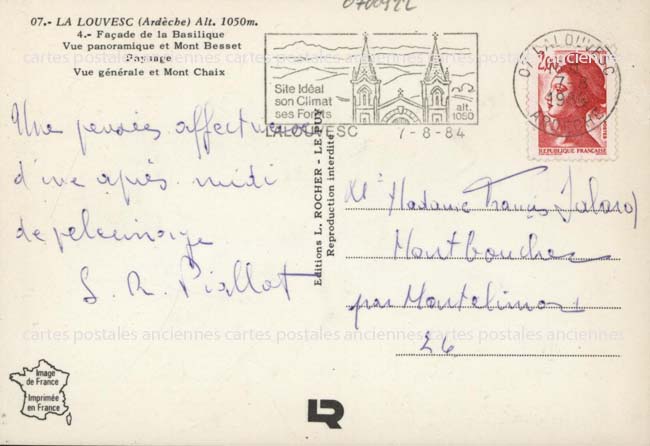 0700922
07.- LA LOUVESC (Ardèche) Alt. 1050m.
4.- Façade de la Basilique
Vue panoramique et Mont Besset
Paysage
Vue générale et Mont Chaix
Site Idéal
son Climat
ses Forêts
alt.
1050
LALOUVESC 7-8-84
07 LALOUVESC
7-8
ARDECHE
2,00
POSTES
REPUBLIQUE FRANÇAISE
Une pensée affectueuse
d'une après midi
de pelerinage
S. R. Piallat
Editions L. ROCHER - LE PUY
Reproduction interdite
Mr Madame Francis
Montboucher
par Montelimar
26
cartes postales anciennes cartes postales anciennes cartes postales anciennes
cartes postales anciennes cartes postales anciennes cartes postales anciennes
Image
de France
Imprimée
en France
LR